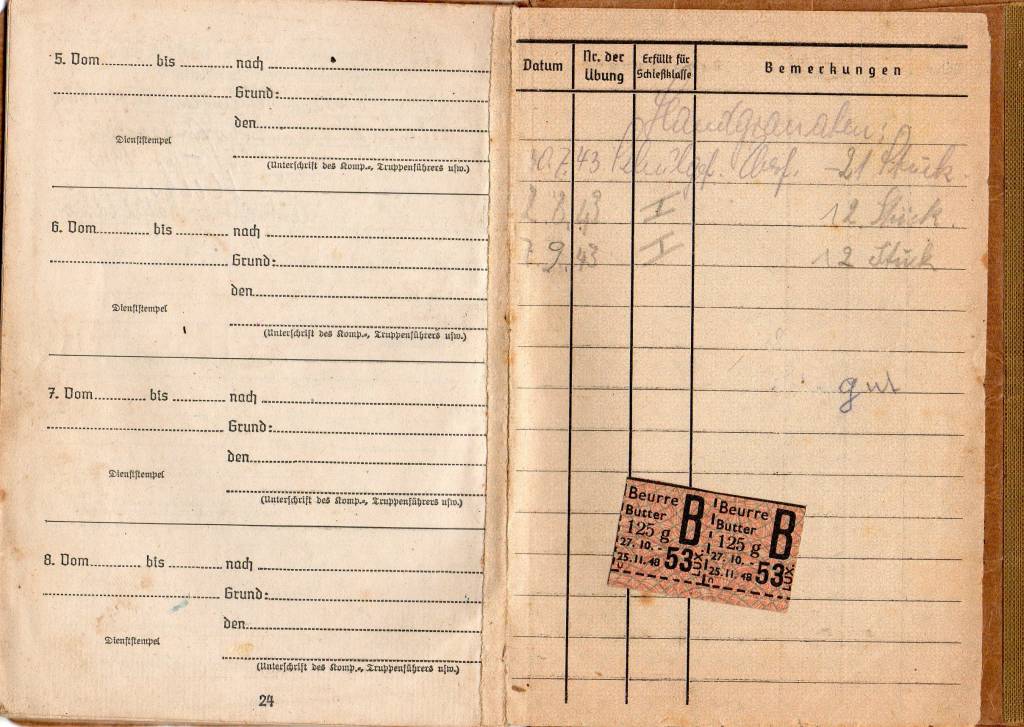 5. Vom.......... bis .......... nach
Grund:
den
Dienststempel
(Unterschrift des Komp.-, Truppenführers usw.)
6. Vom.......... bis .......... nach
Grund:
den
Dienststempel
(Unterschrift des Komp.-, Truppenführers usw.)
7. Vom.......... bis .......... nach
Grund:
den
Dienststempel
(Unterschrift des Komp.-, Truppenführers usw.)
8. Vom.......... bis .......... nach
Grund:
den
Dienststempel
(Unterschrift des Komp.-, Truppenführers usw.)
24
Datum Nr. der Übung Erfüllt für Schießklasse Bemerkungen
Handgranaten:
7.43 21 Stück.
8.43 I 12 Stück.
7 9.43 I 12 Stück
gut
Beurre B Beurre B
Butter Butter
125 g 125 g
27. 10. - 53 LUX 27. 10. - 53 LUX
25. 11. 48 25. 11. 48